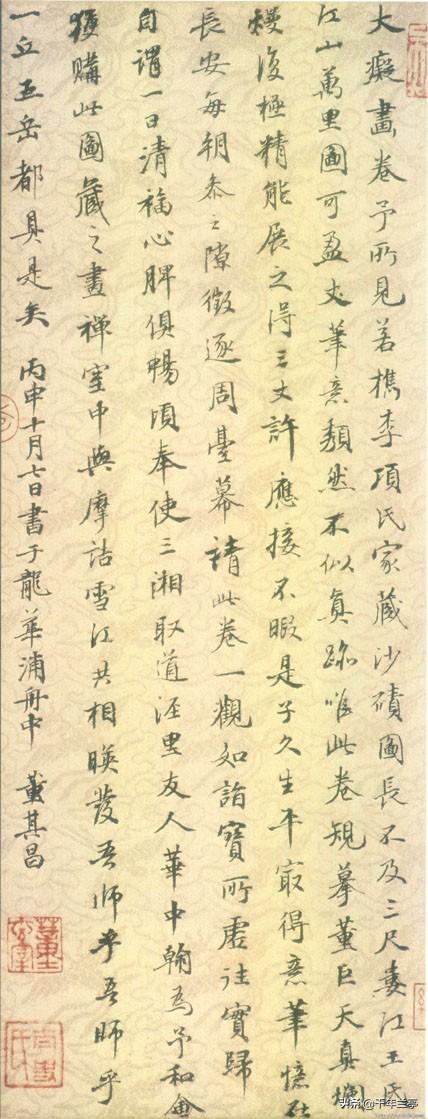 大癡畫卷予所見若檇李項氏家藏沙磧圖長不及三尺婁江王氏
江山萬里圖可盈丈筆意頹然不似真跡唯此卷規摹董巨天真爛
熳復極精能展之得三丈許應接不暇是子久生平冣得意筆憶在
長安每朝參之隙徵逐周臺幕請此卷一觀如詣寶所虛往實歸
自謂一日清福心脾俱暢頃奉使三湘取道涇里友人華中翰為予和會
獲購此圖藏之畫禪室中與摩詰雪江共相暎發吾師乎吾師乎
一丘五岳都具是矣 丙申十月七日書于龍華浦舟中 董其昌
头条@千年兰亭